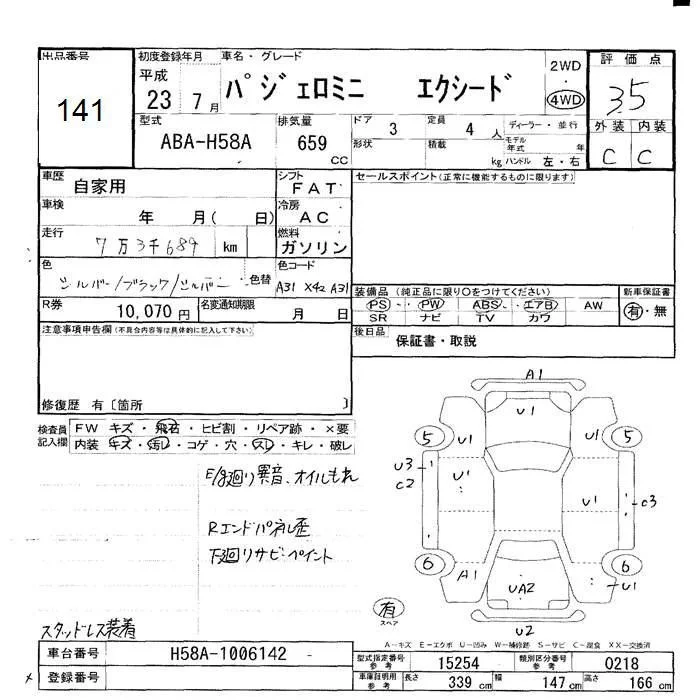 出品番号
141
初度登録年月
平成
23 7 月
車名・グレード
パジェロミニ エクシード
2WD
・
4WD
評価点
3.5
型式
ABA-H58A
排気量
659
CC
ドア
3
定員
4 人
ディーラー・並行
形状
積載
kg
モデル年式 年
ハンドル 左・右
外装 内装
C C
車歴
自家用
シフト
FAT
セールスポイント(正常に機能するものに限ります)
車検
年 月( 日)
冷房
AC
走行
7万3千689 km
燃料
ガソリン
色
シルバー/ブラック/シルバー
色替
色コード
A31 X42 A31
装備品 (純正品に限り○をつけてください)
PS・ PW ABS・ エアB AW
SR ナビ TV カワ
新車保証書
有・無
R券
10,070円
名変通知期限
月 日
後日品
保証書・取説
注意事項申告欄(不具合内容等は具体的に記入して下さい)
修復歴 有〔箇所 〕
検査員記入欄
FW キズ・飛石・ヒビ割・リペア跡・×要
内装 キズ・汚レ・コゲ・穴・スレ・キレ・破レ
E/g廻り異音、オイルもれ
Rエンドパネル歪
下廻りサビ・ペイント
スタッドレス装着
A1
U1
5 U1 U1 5
U3
C2
U1
U1
C3
6 A1
UA2
U1 6
U2
有
スペア
A-キズ E-エクボ U-凹み W-補修跡 S-サビ C-腐食 XX-交換済
車台番号
H58A-1006142
登録番号
型式指定番号
参考
15254
類別区分番号
参考
0218
車庫証明用
参考
長さ 339 cm 幅 147 cm 高さ 166 cm